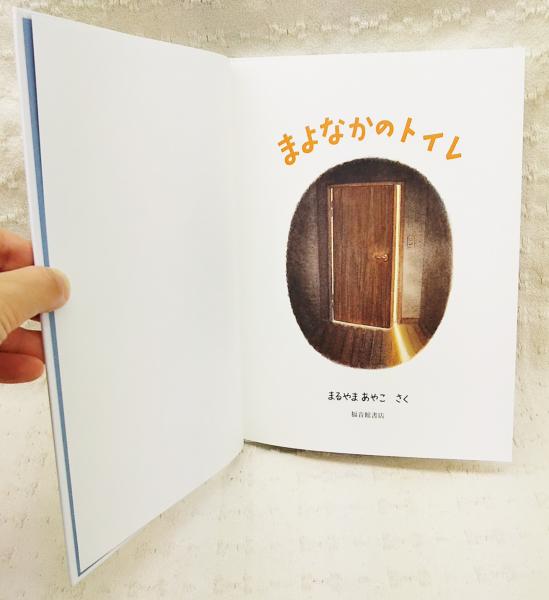 まよなかのトイレ
まるやま あやこ さく
福音館書店